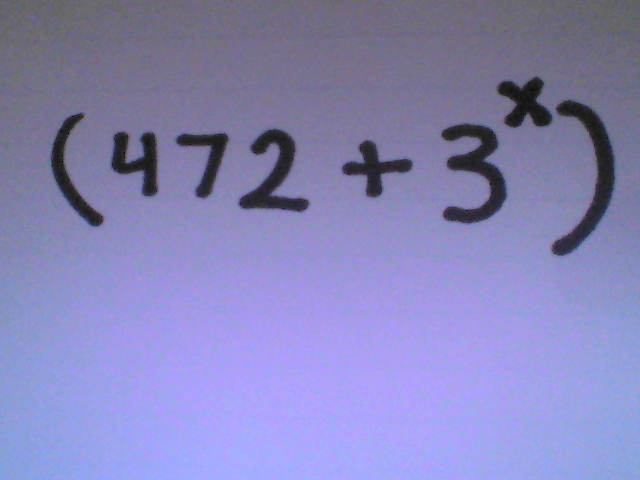 (472 + 3^x)